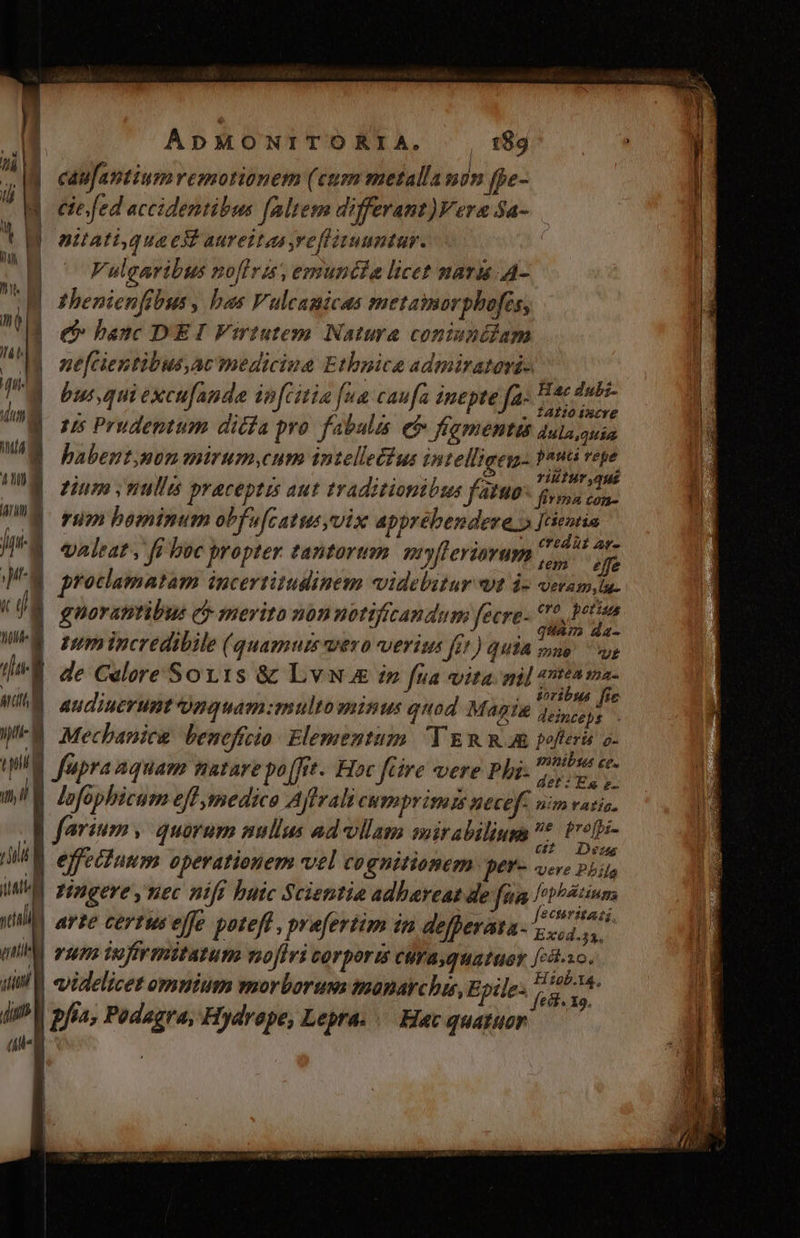 ADMONITORIA. 189
cauſantium remotionem (cum metalla non ſpe-
cie, ſed accidentibus ſaltem differant) Veræ Sa-
nitati, quæ eſt aureitas, reſtituuntur.
Vulgaribus noſtris, emunctæ licet naris A-
thenienſibus, has Vulcanicas metamorphoſes,
& hanc DEI Virtutem Naturæ coniunctam
neſcientibus, ac medicinæ Ethnicæ admiratori-
bus, qui excuſandæ inſcitiæ ſuæ cauſa inepte ſa-
tis Prudentum dicta pro fabulis & figmentis
habent, non mirum, cum intellectus intelligen-
tium, nullis præceptis aut traditionibus fatuo-
rum hominum obfuſcatus, vix apprehendere
valeat, ſi hoc propter tantorum myſteriorum
proclamatam incertitudinem videbitur vt i-
gnorantibus & merito non notificandum ſecre-
tum incredibile (quamuis vero verius ſit) quia
de Calore SOLIS & LVNÆ in ſua vita nil
audiuerunt vnquam: multo minus quod Magiæ
Mechanicæ beneficio Elementum TERRÆ
ſupra aquam natare poſſit. Hoc ſcire vere Phi-
loſophicum eſt, medico Aſtrali cumprimis neceſ-
ſarium, quorum nullus ad vllam mirabilium
effectuum operationem vel cognitionem per-
tingere, nec niſi huic Scientiæ adhæreat de ſua
arte certus eſſe poteſt, præſertim in deſperata-
rum infirmitatum noſtri corporis cura, quatuor
videlicet omnium morborum monarchis, Epile-
pſia, Podagra, Hydrope, Lepra. Hæc quatuor
Hæc dubi-
tatio incre
dula, quia
pauci repe
riũtur, qui
firma con-
ſcientia
credãt ar-
tem eſſe
veram, lu-
cro potius
quàm da-
mno vt
antea ma-
ioribus ſic
deinceps
poſteris o-
mnibus ce-
det: Ea e-
nim ratio-
ne proſpi-
cit Deus
vere Philo
ſophãtium
ſecuritati.
Exod. 33.
ſect. 20.
Hiob. 14.
ſect. 19.